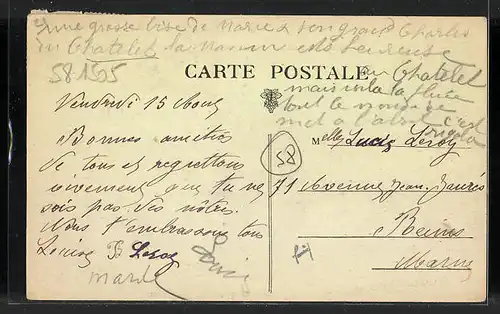 une grosse bise de Marie & son grand Charles
du Chatelet la Maman est heureuse
58 1505
CARTE POSTALE
au Chatelet
mais voila la pluie
tout le monde se
met a l'abri c'est
rigolo
Vendredi 15 Aout
Bonnes amitiés
de tous et regrettons
vivement que tu ne
sois pas des nôtres.
Nous t'embrassons tous
Louise B Leroy
Marie
Melle Lucie Leroy
58
71 Avenue Jean-Jaurès
Reims
Marne